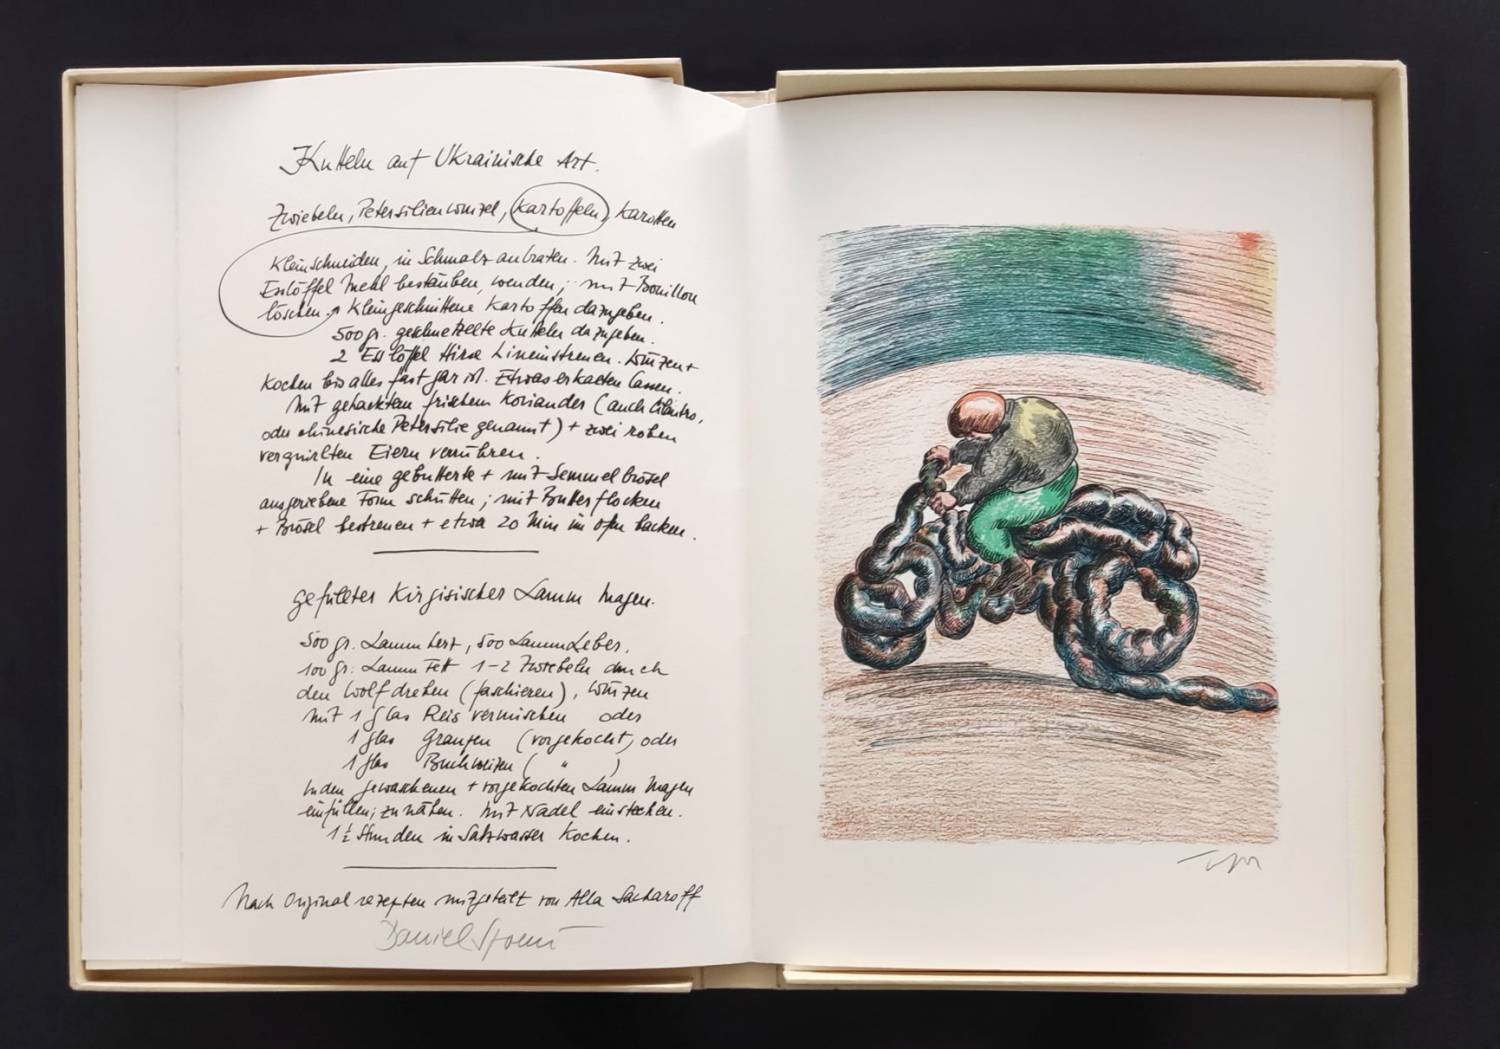 Kutteln auf Ukrainische Art.
Zwiebeln, Petersilienwurzel, Kartoffeln, Karotten
Kleinschneiden, in Schmalz anbraten. Mit zwei
Esslöffel Mehl bestäuben, wenden; mit Bouillon
löschen. Kleingeschnittene Kartoffen dazugeben.
500 gr. geschnetzelte Kutteln dazugeben.
2 Esslöffel Hirse hineinstreuen. Würzen +
Kochen bis alles fast gar ist. Etwas erkalten lassen.
Mit gehacktem frischem Koriander (auch Cilantro,
oder chinesische Petersilie genannt) + zwei rohen
verquirlten Eiern verrühren.
In eine gebutterte + mit Semmelbrösel
ausgeriebene Form schütten; mit Butterflocken
+ Brösel bestreuen + etwa 20 Min im Ofen backen.
gefüllter Kirgisischer Lamm Magen.
500 gr. Lamm Herz, 500 Lamm Leber,
100 gr. Lamm Fett 1-2 Zwiebeln durch
den Wolf drehen (faschieren), würzen
mit 1 Glas Reis vermischen oder
1 Glas Graupen (vorgekocht, oder
1 Glas Buchweizen ( " )
in den gewaschenen + vorgekochten Lamm Magen
einfüllen; zu nähen. Mit Nadel einstechen.
1 ½ Stunden in Salzwasser Kochen.
Nach Original rezepten mitgeteilt von Alla Sacharoff
Daniel Spoerri
Topor